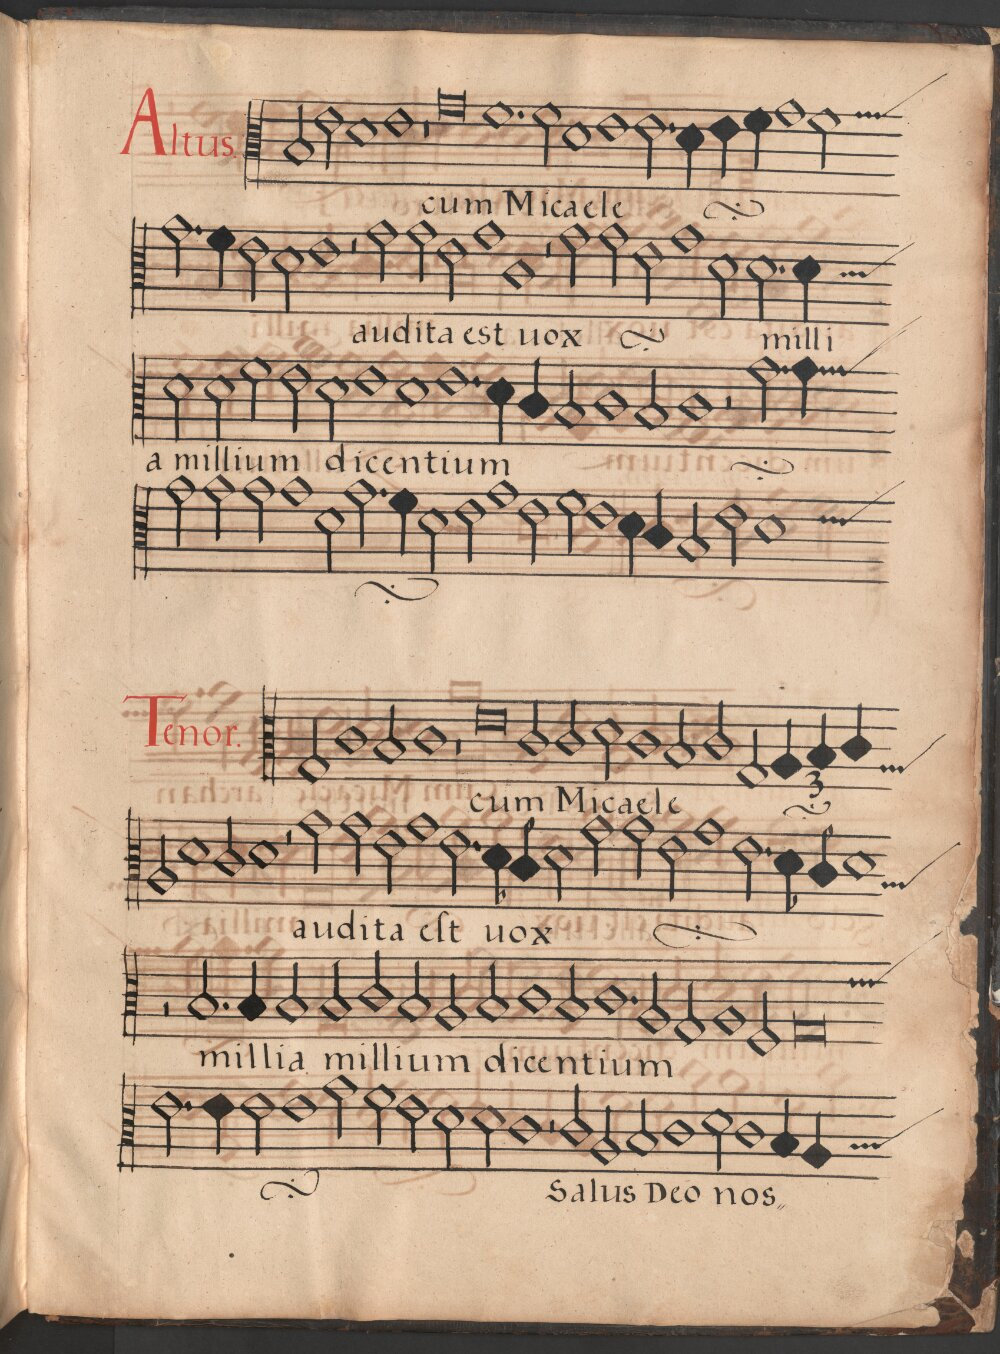 Altus.
cum Micaele
audita est uox milli
a millium dicentium
Tenor.
3
cum Micaele
audita est uox
millia millium dicentium
Salus Deo nos,,